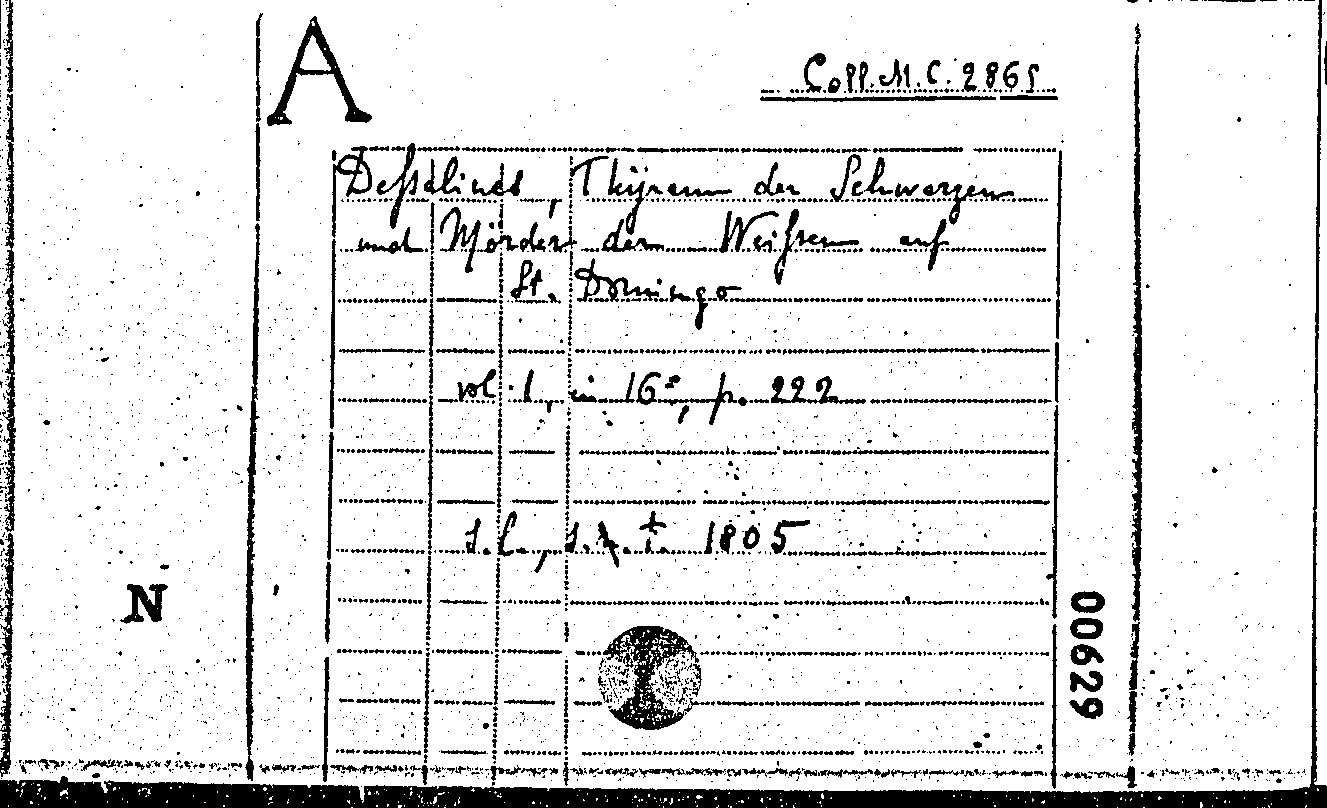 A
Coll. M. C. 2865
Deſsalines, Thÿrann der Schwarzen
und Mörder der Weiſsen auf
St. Domingo
vol. 1, in 16º, p. 222
s. l., s. t. 1805
N
00629